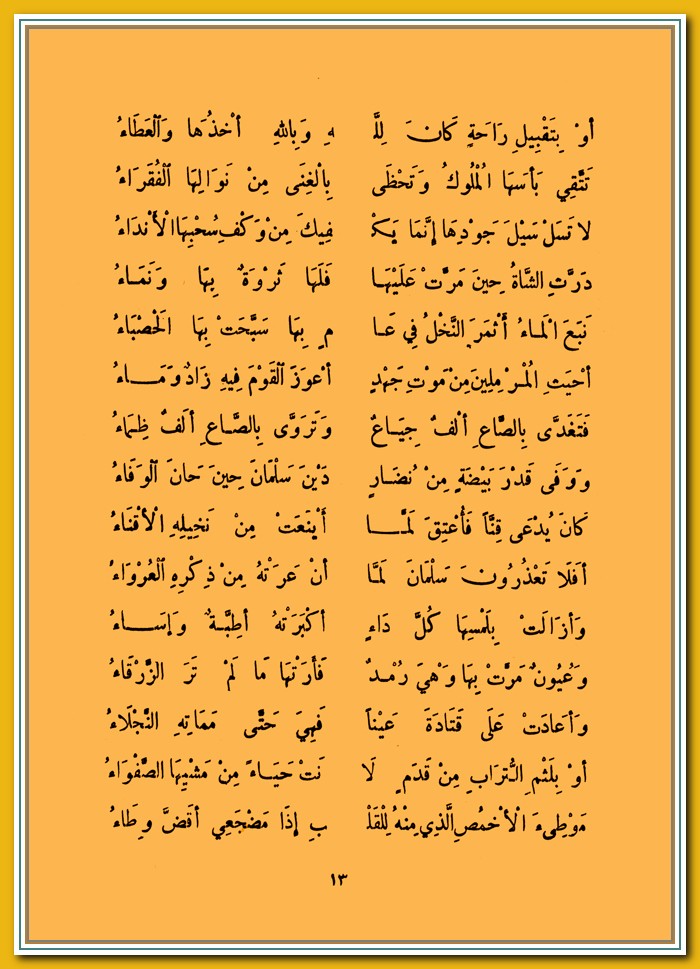 أَوْ بِتَقْبِيلِ رَاحَةٍ كَانَ لِلَّـ ـهِ وَبِاللهِ أَخْذُهَا وَٱلْعَطَاءُ
تَتَّقِي بَأْسَهَا الْمُلُوكُ وَتَحْظَى بِالْغِنَى مِنْ نَوَالِهَا ٱلْفُقَرَاءُ
لا تَسَلْ سَيْلَ جَوْدِهَا إِنَّمَا يَكـْ ـفِيكَ مِنْ وَكْفِ سُحْبِهَا الْأَنْدَاءُ
دَرَّتِ الشَّاةُ حِينَ مَرَّتْ عَلَيْهَا فَلَهَا ثَرْوَةٌ بِهَا وَنَمَاءُ
نَبَعَ الْمَاءُ أَثْمَرَ النَّخْلُ فِي عَا مٍ بِهَا سَبَّحَتْ بِهَا الْحَصْبَاءُ
أَحْيَتِ الْمُرْمِلِينَ مِنْ مَوْتِ جَهْدٍ أَعْوَزَ ٱلْقَوْمَ فِيهِ زَادٌ وَمَاءُ
فَتَغَدَّى بِالصَّاعِ أَلْفٌ جِيَاعٌ وَتَرَوَّى بِالصَّاعِ أَلْفٌ ظِمَاءُ
وَوَفَى قَدْرُ بَيْضَةٍ مِنْ نُضَارٍ دَيْنَ سَلْمَانَ حِينَ حَانَ ٱلْوَفَاءُ
كَانَ يُدْعَى قِنًّا فَأُعْتِقَ لَمَّا أَيْنَعَتْ مِنْ نَخِيلِهِ الْأَقْنَاءُ
أَفَلَا تَعْذُرُونَ سَلْمَانَ لَمَّا أَنْ عَرَتْهُ مِنْ ذِكْرِهِ ٱلْعُرْوَاءُ
وَأَزَالَتْ بِلَمْسِهَا كُلَّ دَاءٍ أَكْبَرَتْهُ أَطِبَّةٌ وَإِسَاءُ
وَعُيُونٌ مَرَّتْ بِهَا وَهْيَ رُمْدٌ فَأَرَتْهَا مَا لَمْ تَرَ الزَّرْقَاءُ
وَأَعَادَتْ عَلَى قَتَادَةَ عَيْناً فَهِيَ حَتَّى مَمَاتِهِ النَّجْلَاءُ
أَوْ بِلَثْمِ التُّرَابِ مِنْ قَدَمٍ لَا نَتْ حَيَاءً مِنْ مَشْيِهَا الصَّفْوَاءُ
مَوْطِىءُ الْأَخْمَصِ الَّذِي مِنْهُ لِلْقَلْـ ـبِ إِذَا مَضْجَعِي أَقَضَّ وِطَاءُ
١٣